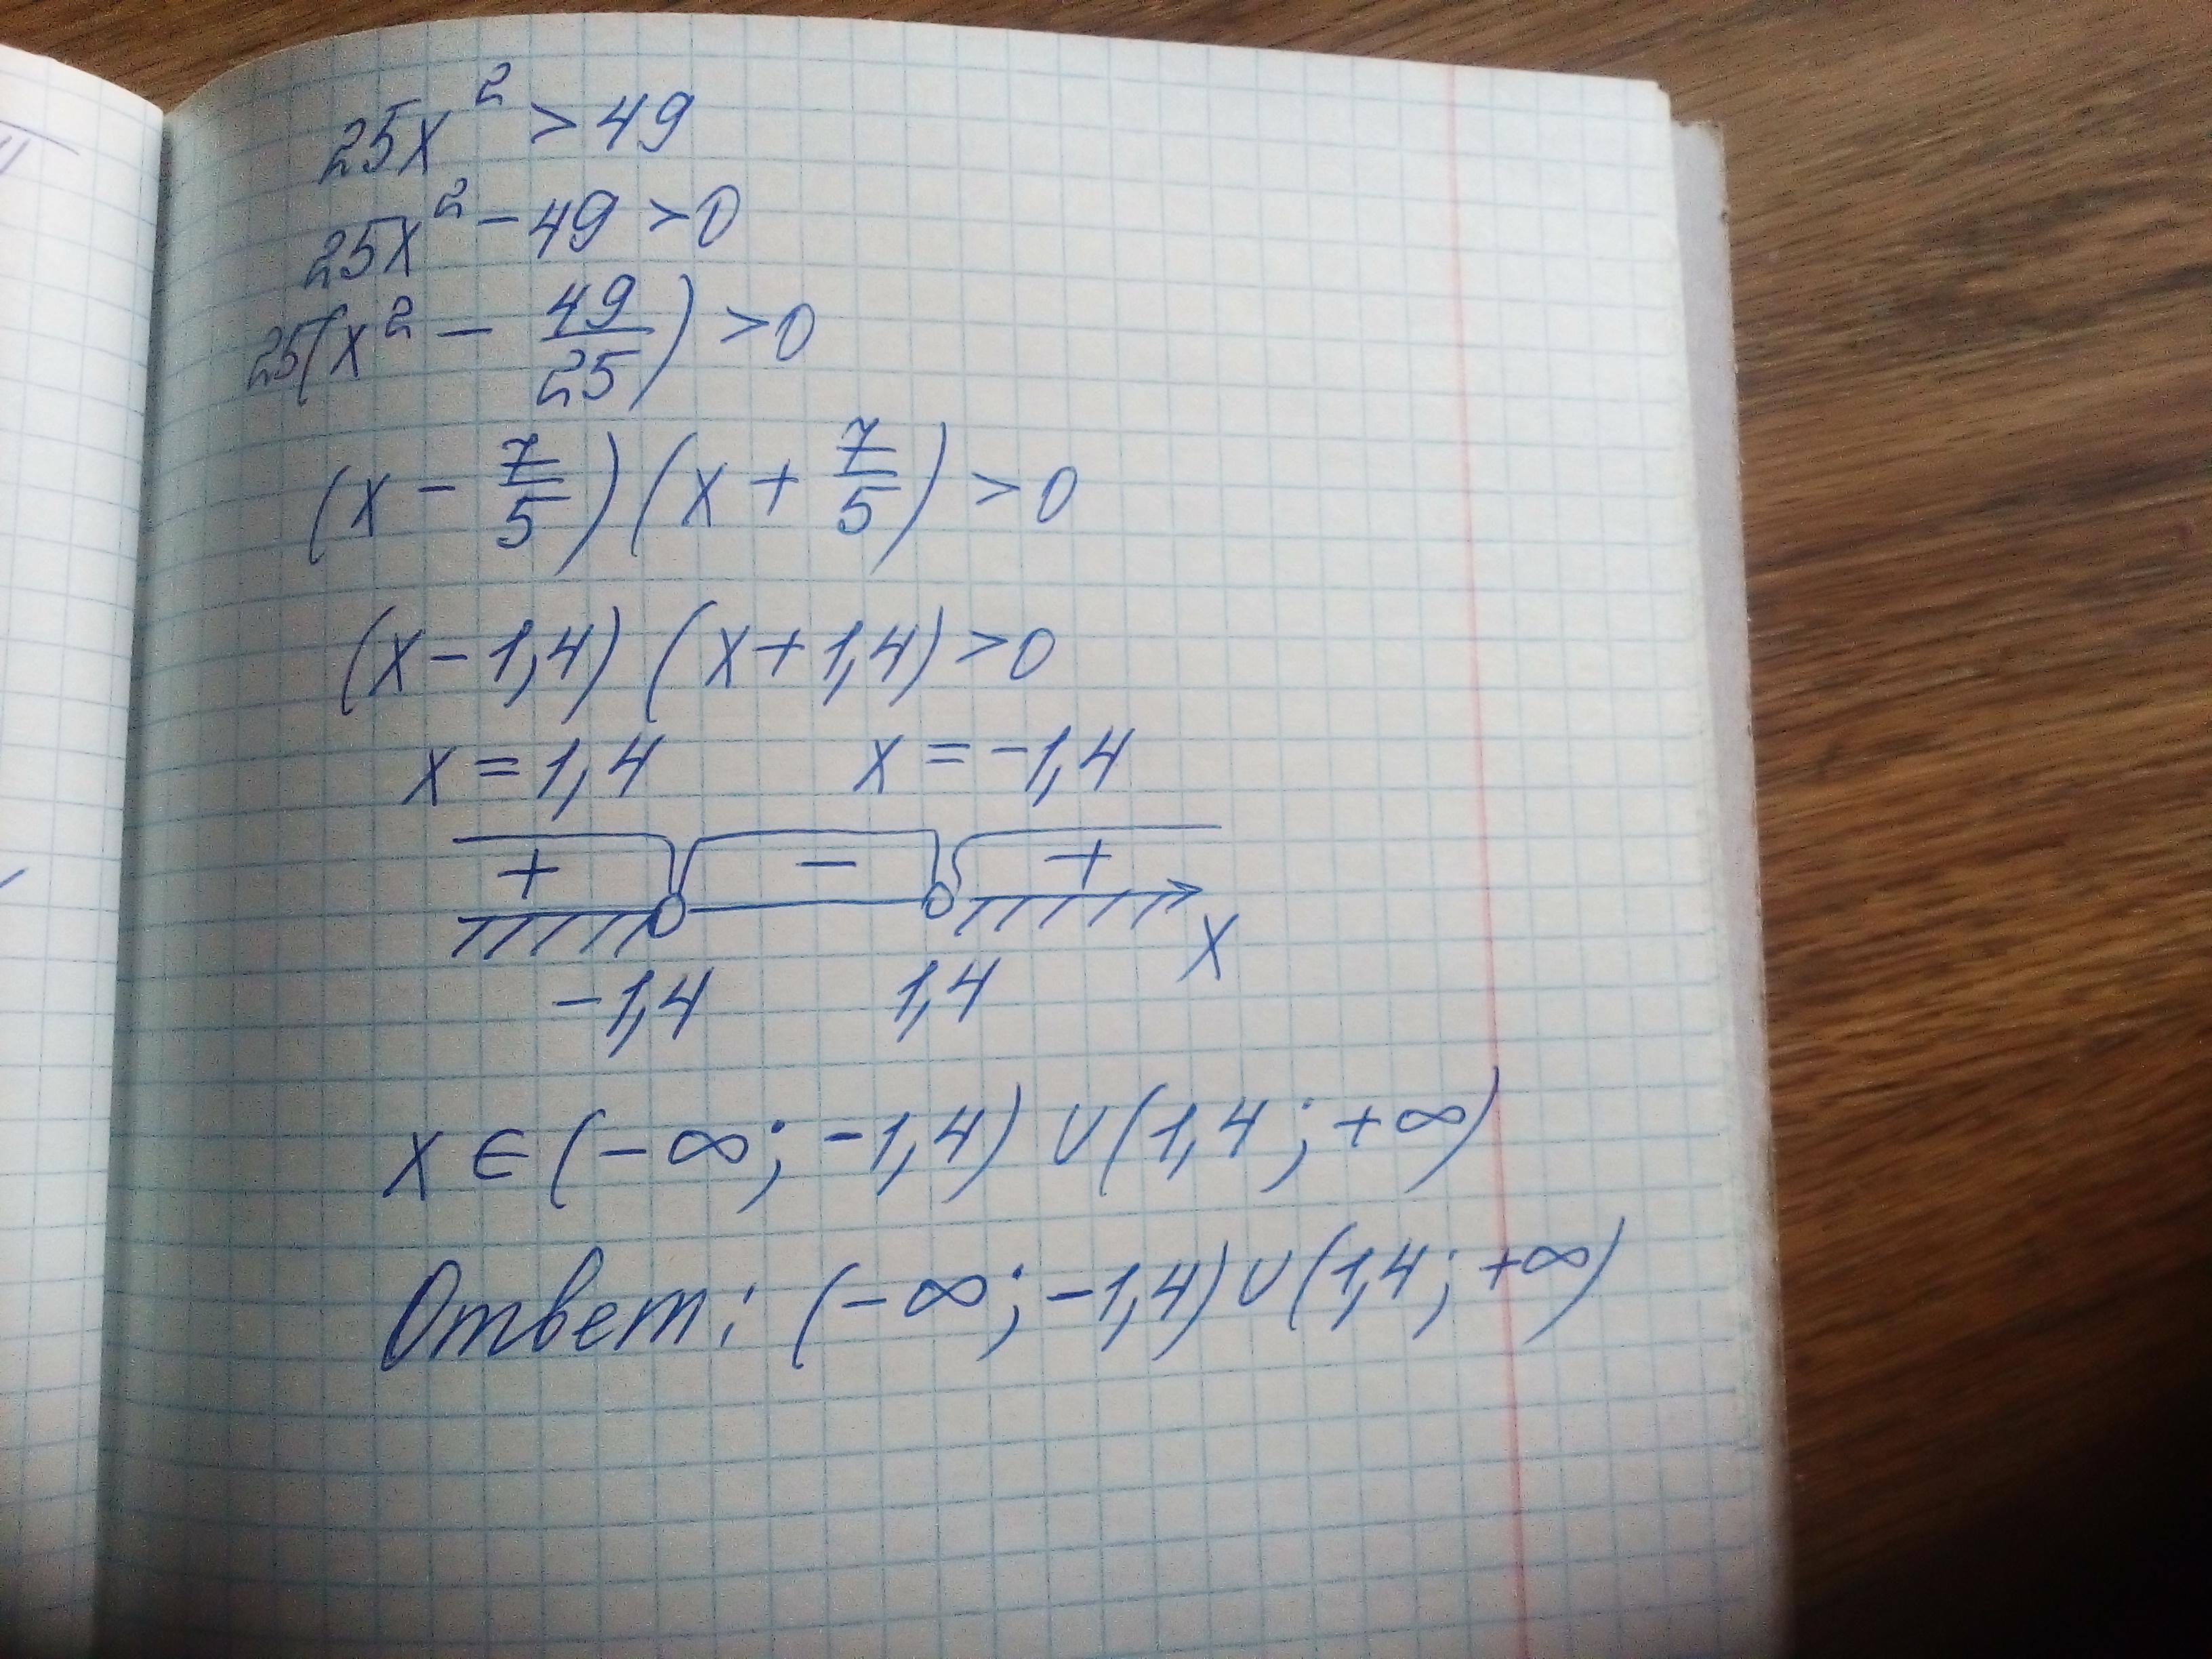 25x² > 49
25x² - 49 > 0
25(x² - 49/25) > 0
(x - 7/5)(x + 7/5) > 0
(x - 1,4)(x + 1,4) > 0
x = 1,4 x = -1,4
+ - +
x
-1,4 1,4
x ∈ (-∞; -1,4) ∪ (1,4; +∞)
Ответ: (-∞; -1,4) ∪ (1,4; +∞)